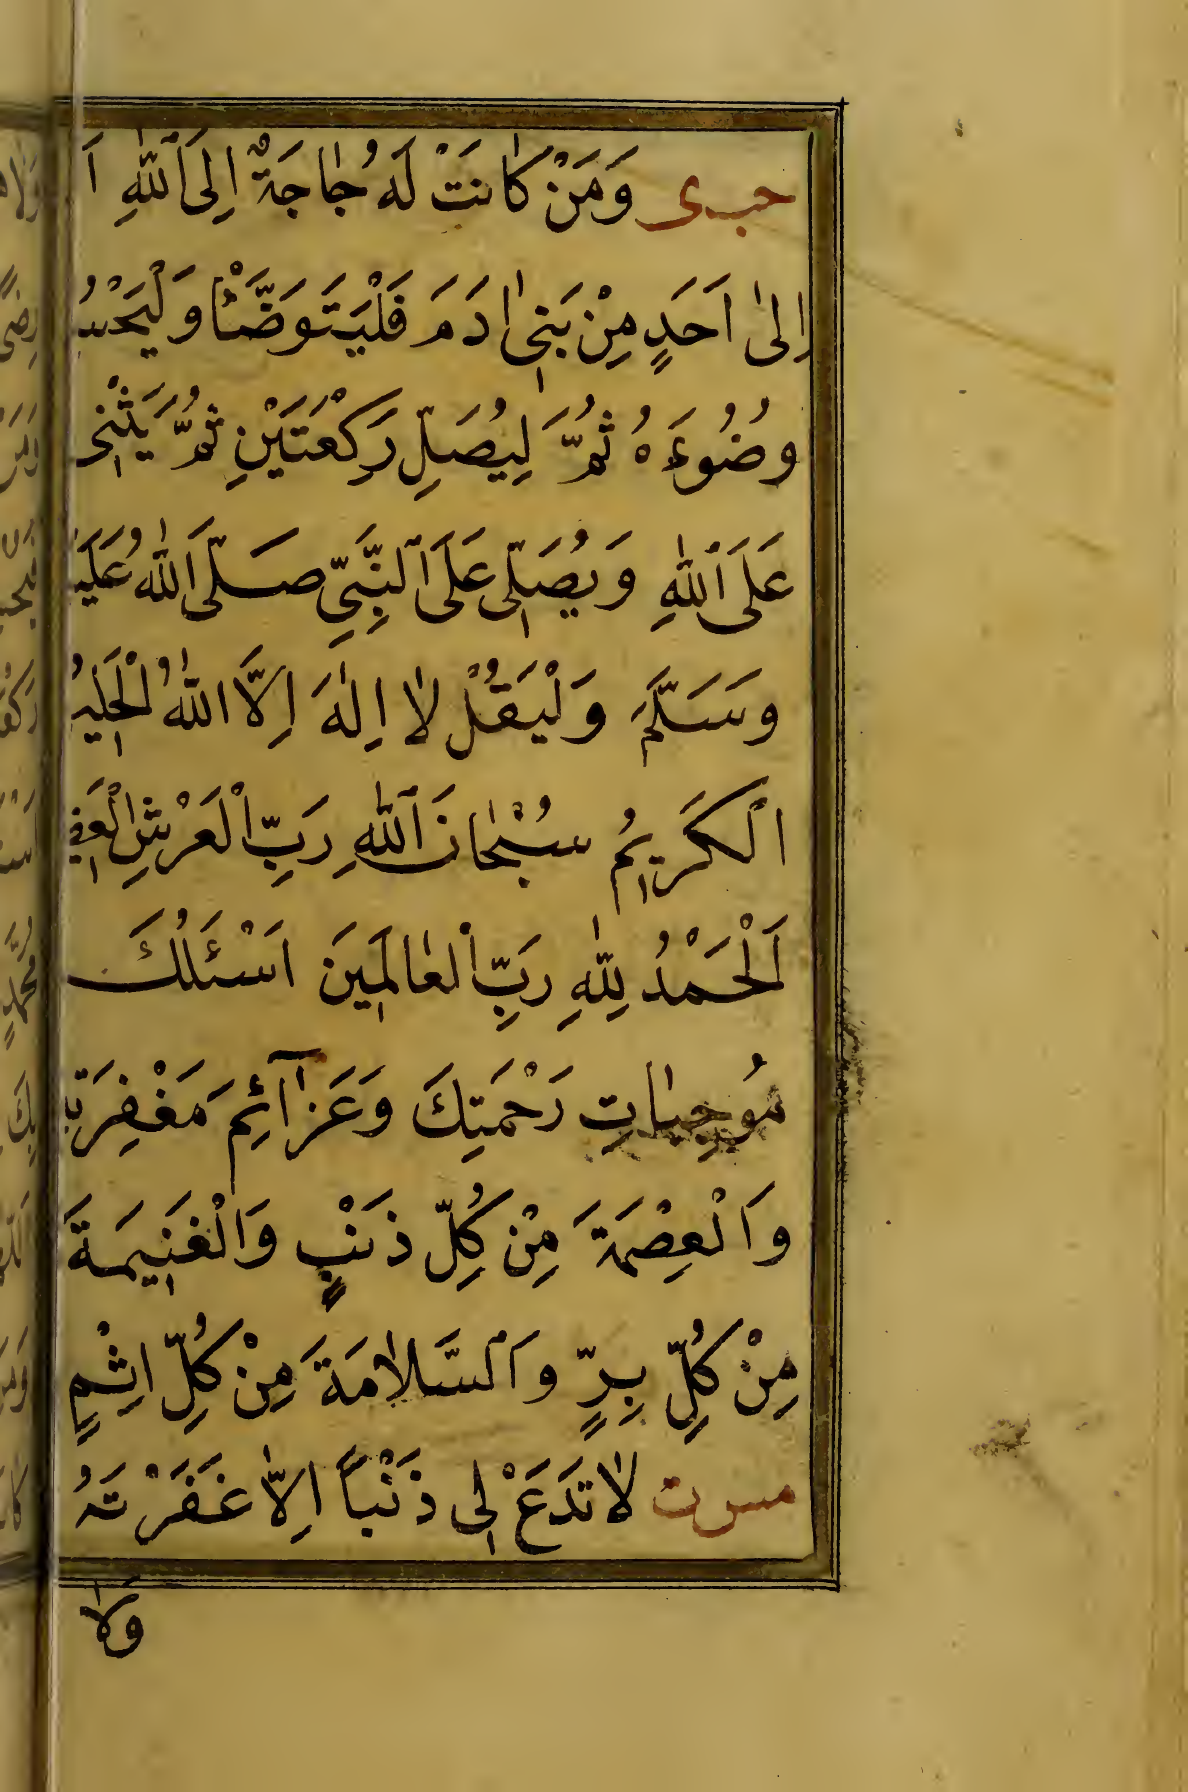 حب ى وَمَنْ كَانَتْ لَهُ حَاجَةٌ اِلَى ٱللّٰهِ اَ
اِلىٰ اَحَدٍ مِنْ بَنِى اٰدَمَ فَلْيَتَوَضَّأْ وَلْيُحْسِ
وضُوءَهُ ثُمَّ لِيُصَلِّ رَكْعَتَيْنِ ثُمَّ يُثْنِى
عَلَى ٱللّٰهِ وَيُصَلِّى عَلَى ٱلنَّبِىِّ صَلَّى اللّٰهُ عَلَيْ
وسَلَّمَ وَلْيَقُلْ لاٰ اِلٰهَ اِلَّا اللّٰهُ الْحَلِيمُ
الْكَرِيمُ سُبْحَانَ ٱللّٰهِ رَبِّ الْعَرْشِ الْعَظِ
اَلْحَمْدُ لِلّٰهِ رَبِّ الْعَالَمِينَ اَسْئَلُكَ
مُوجِبَاتِ رَحْمَتِكَ وَعَزَآئِمَ مَغْفِرَتِ
وَالْعِصْمَةَ مِنْ كُلِّ ذَنْبٍ وَالْغَنِيمَةَ
مِنْ كُلِّ بِرٍّ وَٱلسَّلَامَةَ مِنْ كُلِّ اِثْمٍ
مس ت لَا تَدَعْ لِى ذَنْباً اِلَّا غَفَرْتَهُ
وَلَا